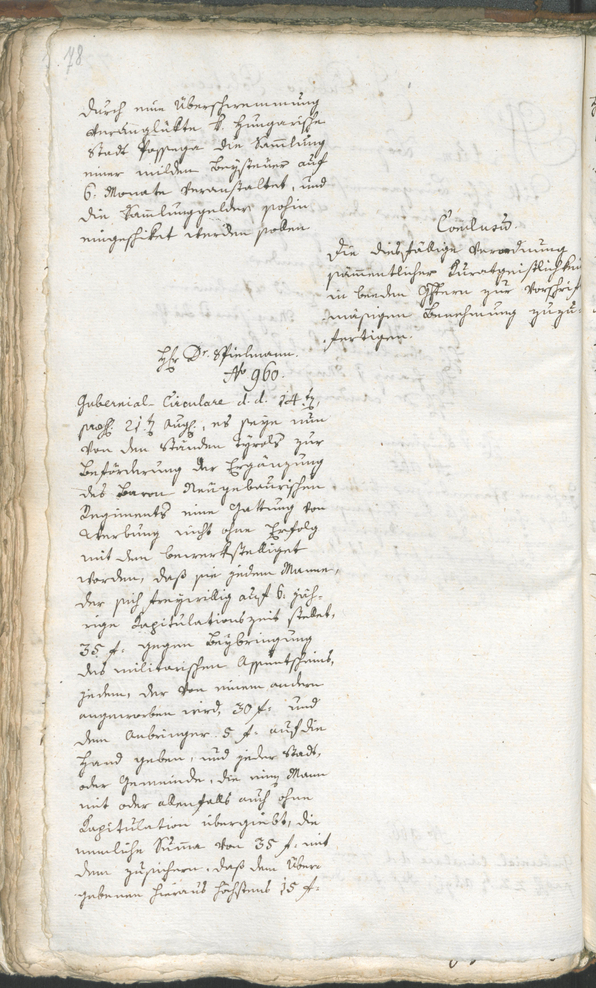 78
durch eine Überschwemmung
verunglükte k. Hungarische
Stadt Possega die Sammlung
einer milden Beysteuer auf
6. Monate veranstaltet, und
die Sammlunggelder sohin
eingeschikt werden sollen
Conclusum.
Die diesfällige Verordnung
sämmentlicher Kuratgeistlichkeit
in beeden Pfarren zur vorschrift
mäsigen Benehmung zuzu-
fertigen.
Hr. Dr. Spielmann.
No 960.
Gubernial-Circulare d. d. 14t,
21t Aug, es seye nun
von den Ständen Tyrols zur
Beförderung der Ergänzung
des Baron Neugebaurischen
Regiments eine Gattung von
Werbung nicht ohne Erfolg
mit dem bewerkstelliget
worden, daß sie jedem Manne,
der sich freywillig auf 6. jäh-
rige Kapitulationszeit stellet,
35 f. gegen Beybringung
des militarischen Assentscheins,
jedem, der von einem andern
angeworben wird, 30 f. und
dem Anbringer 5 f. auf die
Hand geben, und jeder Stadt,
oder Gemeinde, die einen Mann
mit oder allenfalls auch ohne
Kapitulation übergiebt, die
nemliche Suma von 35 f. mit
dem zusichern, daß dem Über-
gebenen hieraus höchstens 15 f.